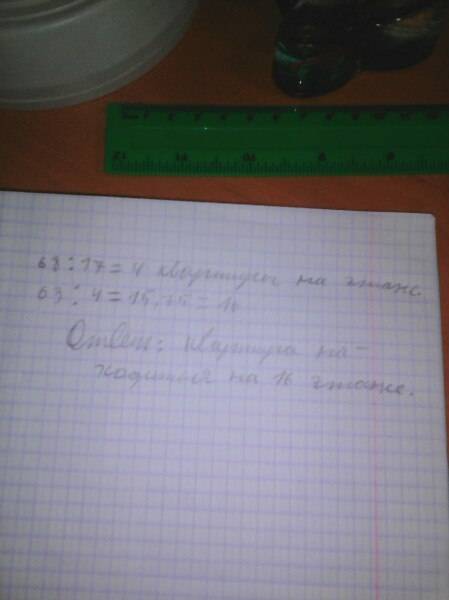 68 : 17 = 4 квартиры на этаже.
63 : 4 = 15,75 = 16
Ответ: квартира на-
ходится на 16 этаже.